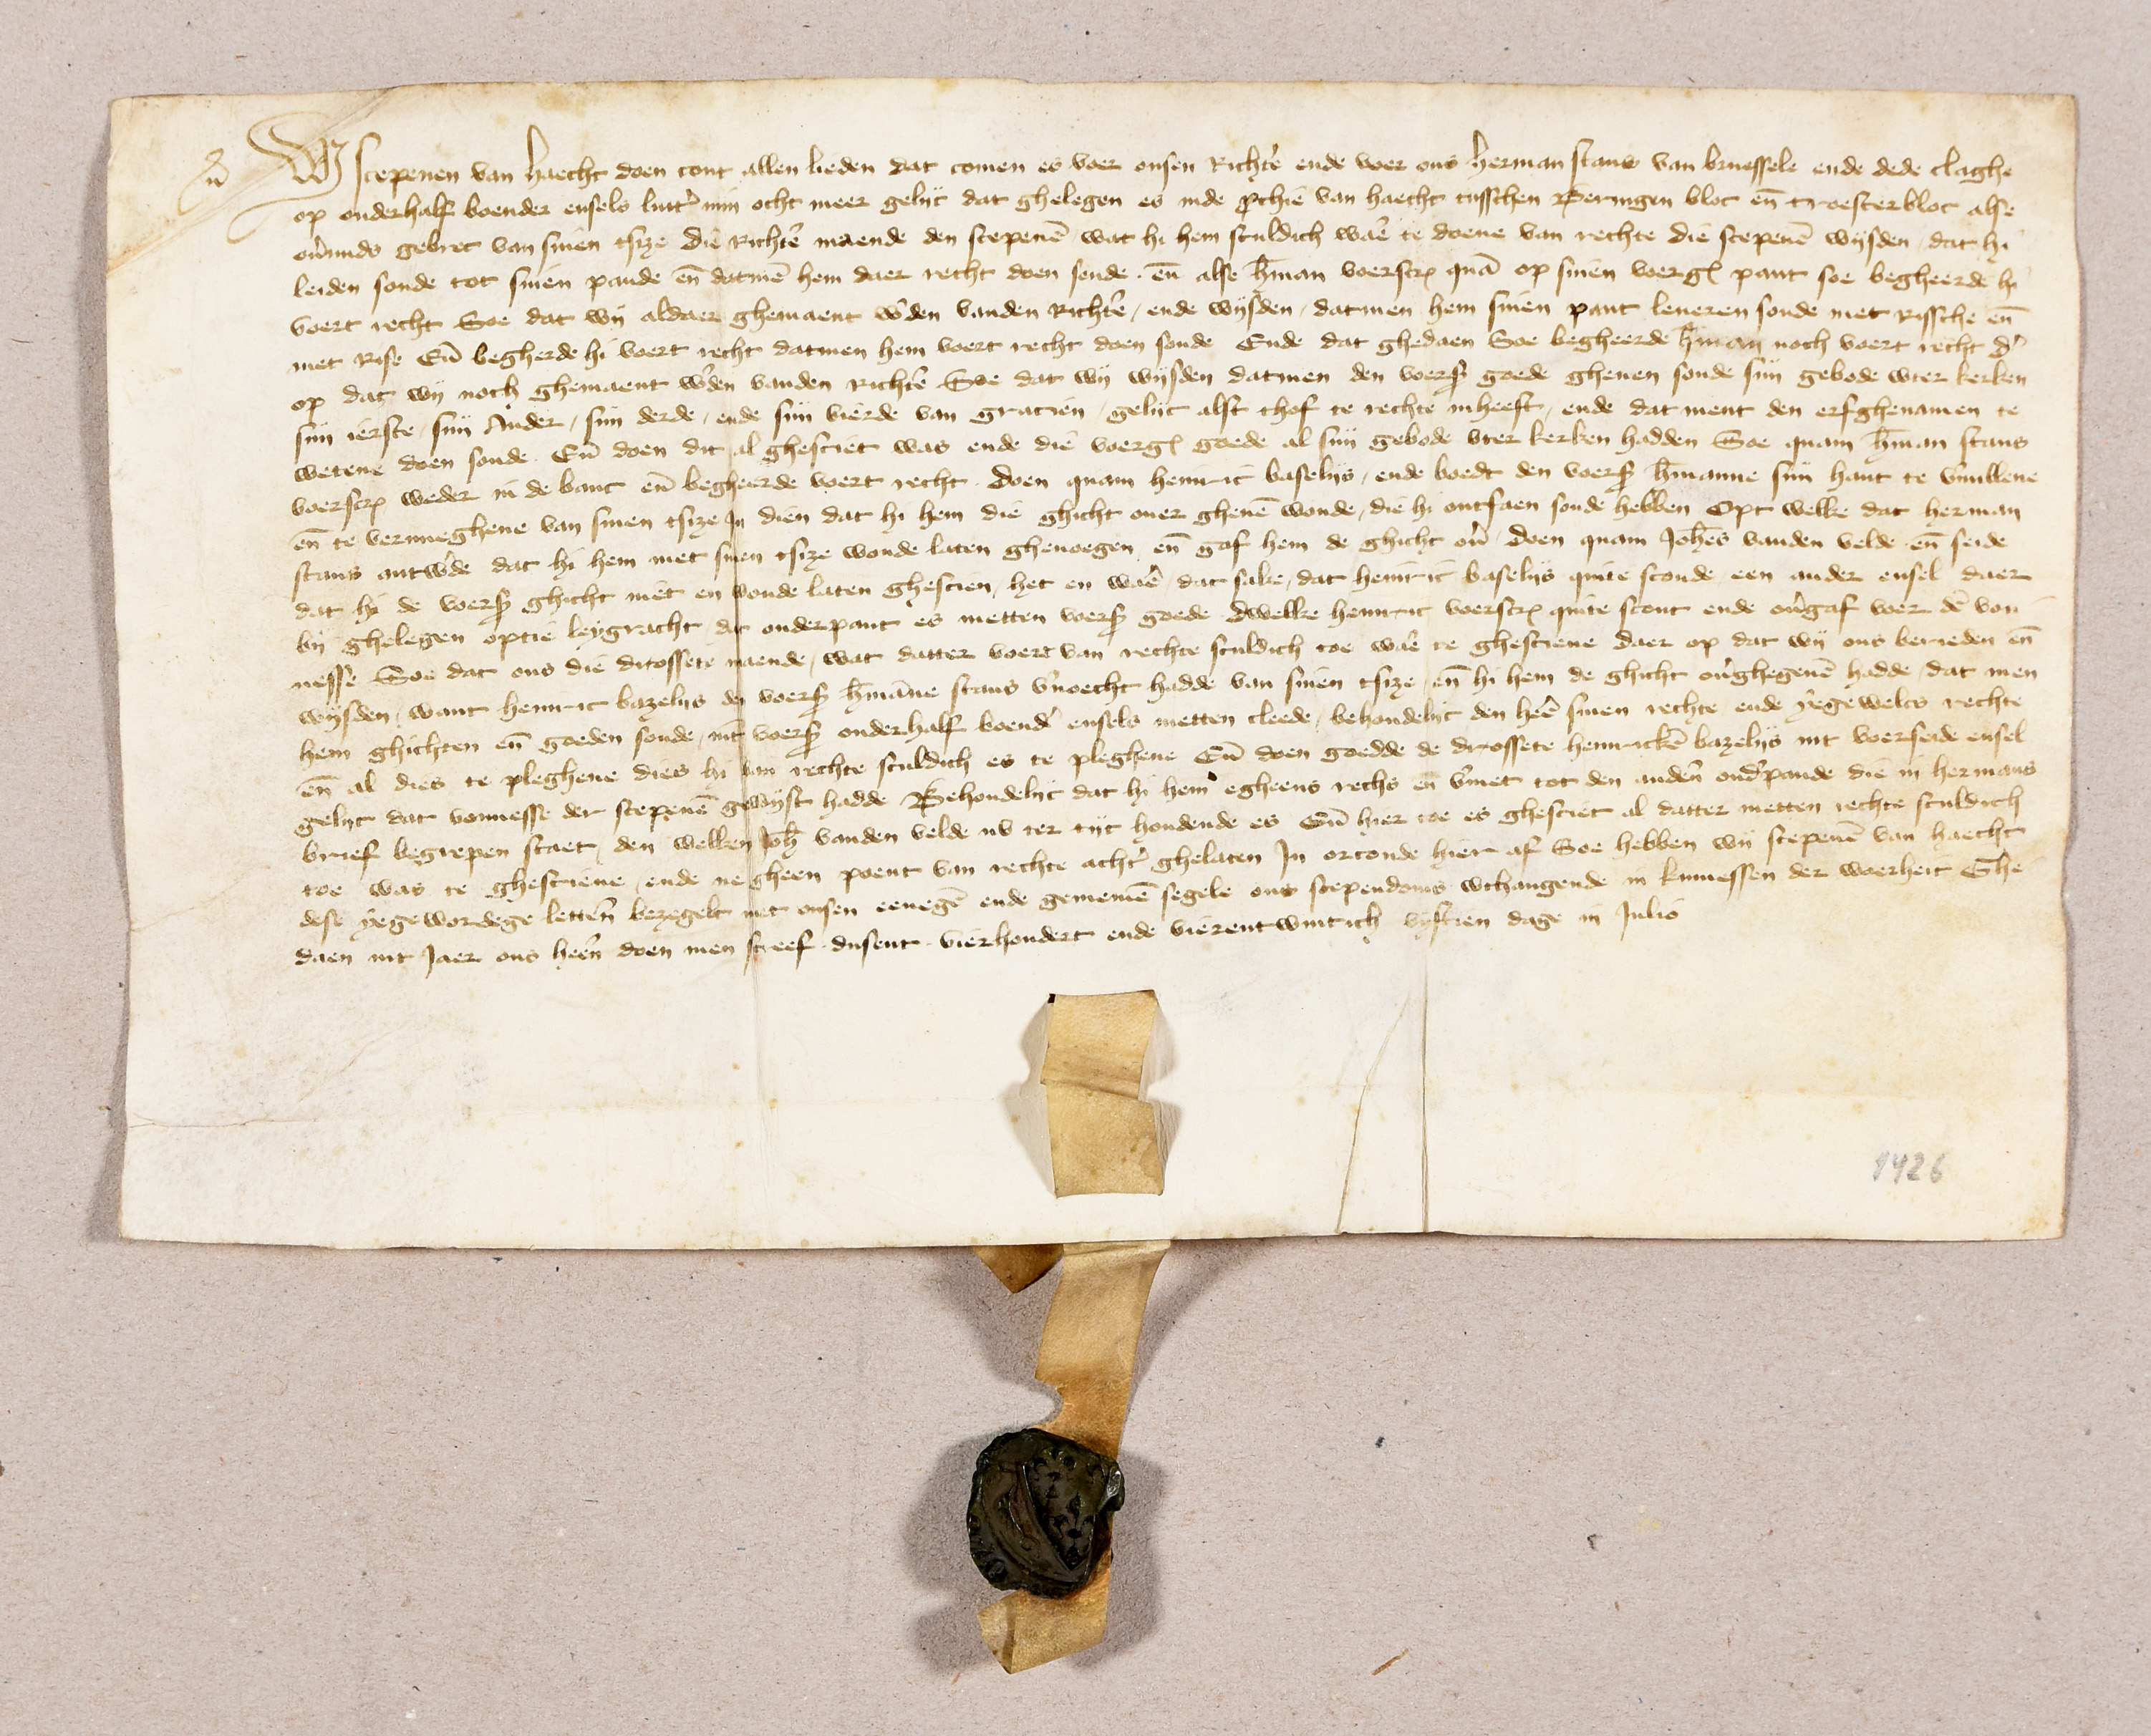 Wij scepenen van haecht doen cont allen lieden dat comen es voer onsen Richtere ende voer ons herman staus van bruessele ende dede claghe
op onderhalf boender eusels luttr min ocht meer gelijc dat ghelegen es inde prochie van haecht tusschen Beringen bloc eñ troesterbloc alse
ouermids gebrec van sinen tsize Die Richtere maende den scepenē wat hi hem sculdich waere te doene van rechte die scepenē wijsden dat hi
leiden soude tot sinen pande eñ datmē hem daer recht doen soude eñ alse hman voerscr quā op sinen voergs pant soe begheerde hi
voert recht Soe dat wij aldaer ghemaent wden vanden Richtere / ende wijsden / datmen hem sinen pant leueren soude met Rijssche eñ
met Rise Eñ begherde hi voert recht datmen hem voert recht doen soude Ende dat ghedaen Soe begheerde hman noch voert recht dr
op dat wij noch ghemaent wden vanden richtere Soe dat wij wijsden datmen den voers goede gheuen soude sijn gebode wter kerken
sijn ierste / sijn Ander / sijn derde / ende sijn vierde van gracien / gelijc alst thof te rechte inheeft / ende dat ment den erfghenamen te
wetene doen soude Eñ doen dit al ghesciet was ende die voergs goede al sijn gebode vter kerken hadden Soe quam hman staus
voerscr weder in de banc eñ begheerde voert recht Doen quam heinric baselijs / ende boedt den voers hmanne sijn hant te vuullene
eñ te vernueghene van sinen tsize In dien dat hi hem die ghicht ouer gheuē woude / die hi ontfaen soude hebben Opt welke dat herman
staus antwde dat hi hem met sinen tsize woude laten ghenoegen eñ gaf hem de ghicht ouer Doen quam Johes vanden velde eñ seide
dat hi de voers ghicht niet en woude laten ghescien / het en waere dat sake / dat heinric baselijs quite sconde een ander eusel daer
bij ghelegen optie leygracht dat onderpant es metten voers goede Dwelke heinric voerscr quite scout ende ouergaf voer dē von
nesse Soe dat ons die drossete maende / wat datter voert van rechte sculdich toe waere te ghesciene daer op dat wij ons berieden eñ
wijsden / want heinric bazelijs den voers hmāne staus vnoecht hadde van sinen tsize / eñ hi hem de ghicht ouerghegeuē hadde / dat men
hem ghichten eñ goeden soude / int voers onderhalf boender eusels metten cleede / behoudelijc den heere sinen rechte ende yegewelcs rechte
eñ al dies te pleghene dies hi van rechte sculdich es te pleghene Eñ doen goedde de drossete heinrickē bazelijs int voerseide eusel
gelijc dat vonnesse der scepenē gewijst hadde Behoudelijc dat hi hem egheens rechs en vmet tot den anderen onderpande die in hermans
brief begrepen staet / den welken Joh vanden velde nv ter tijt houdende es Eñ hier toe es ghesciet al datter metten rechte sculdich
toe was te ghesciene / ende negheen poent van rechte achter ghelaten In orconde hier af Soe hebben wij scepenē van haecht
dese yegewordege letteren bezegelt met onsen eenegē ende gemeinē segele ons scependoms wthangende in kinnessen der waerheit Ghe
daen int Jaer ons heeren doen men screef dusent vierhondert ende vierentwintich vijftien dage in Julio
1426